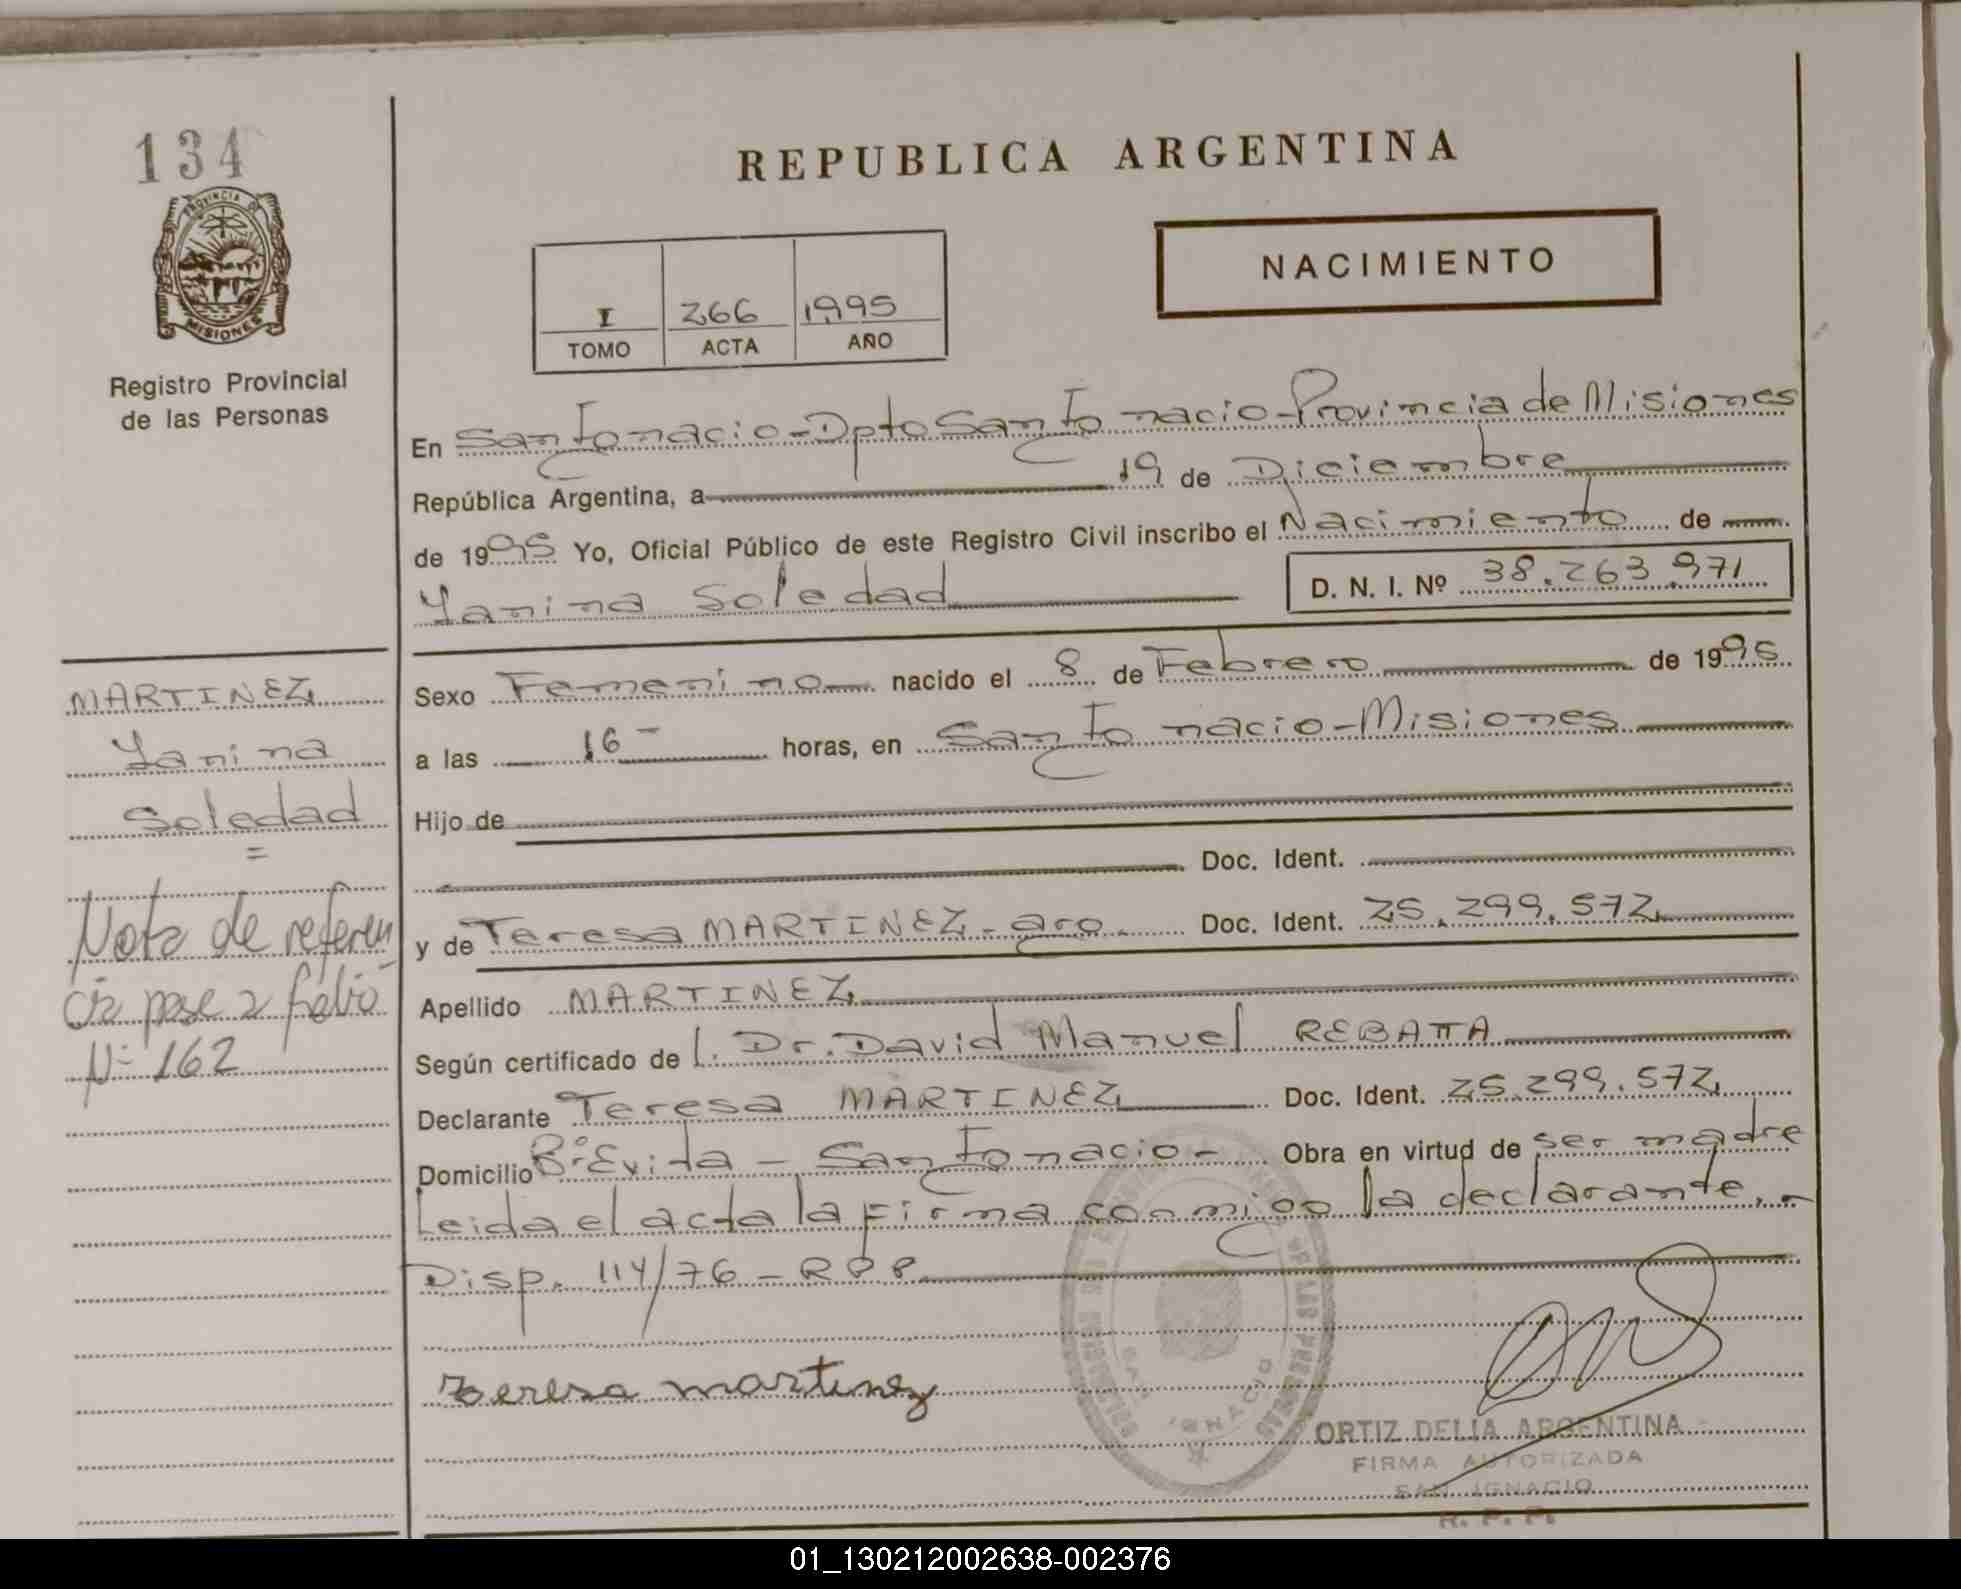 134
PROVINCIA DE
MISIONES
Registro Provincial
de las Personas
REPUBLICA ARGENTINA
NACIMIENTO
I 266 1995
TOMO ACTA AÑO
En San Ignacio - Dpto San Ignacio - Provincia de Misiones
República Argentina, a 19 de Diciembre
de 1995 Yo, Oficial Público de este Registro Civil inscribo el Nacimiento de
Yanina Soledad D. N. I. Nº 38.263.971
Sexo Femenino nacido el 8 de Febrero de 1995
a las 16 - horas, en San Ignacio - Misiones
Hijo de
Doc. Ident.
y de Teresa MARTINEZ - arg. Doc. Ident. 25.299.572
Apellido MARTINEZ
Según certificado de l. Dr. David Manuel REBATTA
Declarante Teresa MARTINEZ Doc. Ident. 25.299.572
Domicilio Bº Evita - San Ignacio - Obra en virtud de ser madre
Leida el acta la firma conmigo la declarante. -
Disp. 114/76 - RPP
teresa martinez
ORTIZ DELIA ARGENTINA
FIRMA AUTORIZADA
SAN IGNACIO
R. P. P.
MARTINEZ
Yanina
Soledad
=
Nota de referen
cia pase a folio
Nº 162
SAN IGNACIO
01_130212002638-002376